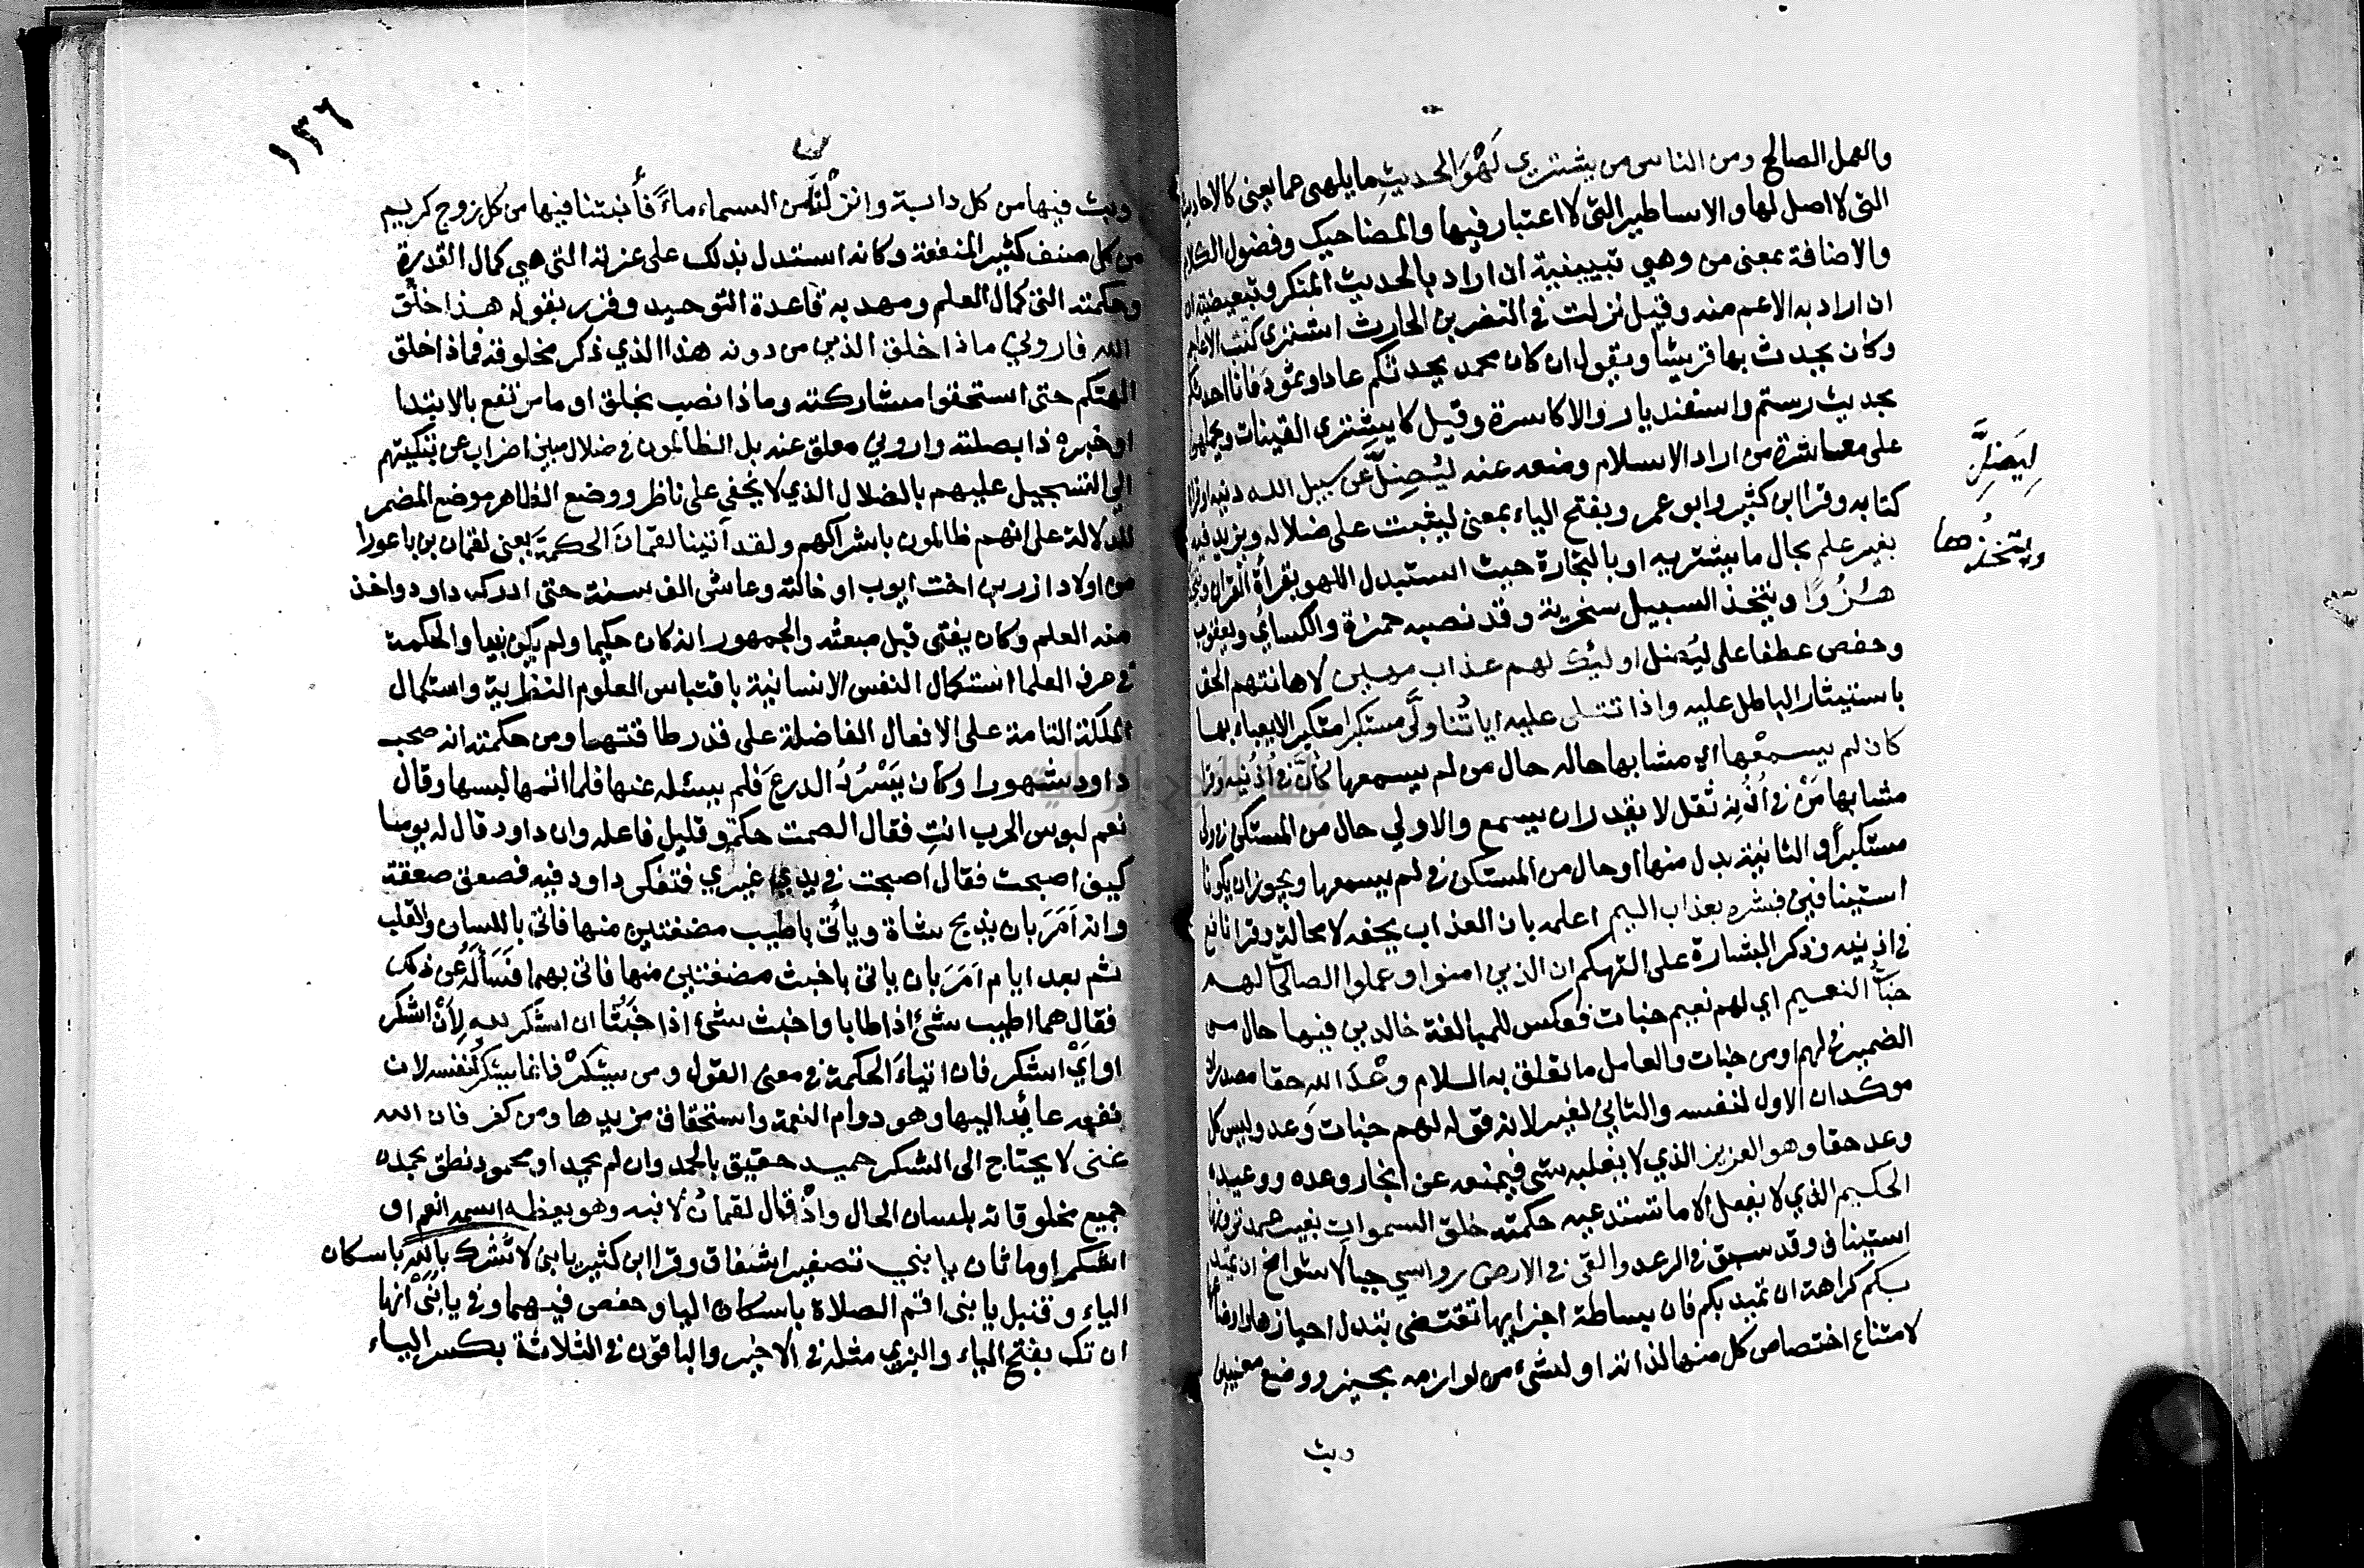 والعمل الصالح ومن الناس من يشتري لَهْوَ الحديثِ ما يلهى عما يعنى كالاحاديث
التى لا اصل لها والاساطير التى لا اعتبار فيها والمضاحيك وفضول الكلام
والاضافة بمعنى من وهي تبيينية ان اراد بالحديث المنكر وتبعيضية ان
ان اراد به الاعم منه وقيل نزلت في النضر بن الحارث اشترى كتب الاعاجم
وكان يحدث بها قريشا ويقول ان كان محمد يحدثكم عاد وثمود فانا احدثكم
بحديث رستم واسفنديار والاكاسرة وقيل كان يشترى القينات ويحملهن
على معاشرة من اراد الاسلام ومنعه عنه ليُضِلَّ عن سبيل الله دينه او قراءة
كتابه وقرا ابن كثير وابو عمرو بفتح الياء بمعنى ليثبت على ضلاله ويزيد فيه
بغير علم بحال ما يشتريه او بالتجارة حيث استبدل اللهو بقرأة القران ويتخذها
هُزُوًا ويتخذ السبيل سخرية وقد نصبه حمزة والكسائي ويعقوب
وحفص عطفا على ليُضل اوليئك لهم عذاب مهين لاهانتهم الحق
باستيثار الباطل عليه واذا تتلى عليه اياتُنا ولَّى مستكبرا متكبرا لا يعباء بها
كان لم يسمعْها اي مشابها حاله حال من لم يسمعها كأنَّ في اُذُنيه وقرا
مشابها مَنْ في اُذُنِه ثقل لا يقدر ان يسمع والاولي حال من المستكن في ولى
مستكبراً والثانية بدل منها او حال من المستكن في لم يسمعها ويجوز ان يكونا
استينافين فبشره بعذاب اليم اعلمه بان العذاب يحقه لا محالة وقرا نافع
في اذنيه وذكر البشارة على التهكم ان الذين امنوا وعملوا الصالحات لهم
جنات النعيم اي لهم نعيم جنات فعكس للمبالغة خالدين فيها حال من
الضمير في لهم او من جنات والعامل ما تعلق به السلام وعْدَ الله حقا مصدران
موكدان الاول لنفسه والثاني لغيره لان قوله لهم جنات وَعد وليس كل
وعد حقا وهو العزيز الذي لا يغلبه شى فيمنعه عن انجاز وعده ووعيده
الحكيم الذي لا يفعل الا ما تستدعيه حكمته خلق السموات بغير عمد ترونها
استيناف وقد سبق في الرعد والقى في الارض رواسي جبالا شوامخ ان تميد
بكم كراهة ان تميد بكم فان بساطة اجزايها تقتضى تبدل احيازها واوضاعها
لامتناع اختصاص كل منها لذاته او لشيء من لوازمه بحيز ووضع معينين
وبث
لِيَضِلَّ
ويتخذُها
١٣٦
وبث فيها من كل دابة وانزلْنَا من السماء ماءً فأنبتنا فيها من كل زوج كريم
من كل صنف كثير المنفعة وكانه استدل بذلك على عزته التى هي كمال القدرة
وحكمته التى كمال العلم ومهد به قاعدة التوحيد وقرر بقوله هذا خلْق
الله فاروني ماذا خلق الذين من دونه هذا الذي ذكر مخلوقه فماذا خلق
الهتكم حتى استحقوا مشاركته وماذا نصب بخلق او ما من تفع بالابتدا
او خبره ذا بصلته واروني معلق عنه بل الظالمون في ضلال مبين اضراب عن تبكيتهم
الى التسجيل عليهم بالضلال الذي لا يخفى على ناظر ووضع الظاهر موضع المضمر
للدلالة على انهم ظالمون باشراكهم ولقد آتينا لقمانَ الحكمةَ يعنى لقمان بن باعورا
من اولاد ازر بن اخت ايوب او خالته وعاش الف سنة حتى ادرك داود واخذ
منه العلم وكان يفتى قبل مبعثه والجمهور انه كان حكيما ولم يكن نبيا والحكمة
في عرف العلما استكمال النفس الانسانية باقتباس العلوم النظرية واستكمال
الملكة التامة على الافعال الفاضلة على قدر طاقتها ومن حكمته انه صحب
داود شهورا وكان يَسْرُدُ الدرعَ فلم يسئله عنها فلما اتمها لبسها وقال
نعم لبوس الحرب انتِ فقال الصمت حكمة وقليل فاعله وان داود قال له يوما
كيف اصبحت فقال اصبحت في يدي غيري فتفكر داود فيه فصعق صعقة
وانه اَمَرَ بان يذبح شاة ويأتى باطيب مضغتين منها فاتى باللسان والقلب
ثم بعد ايام اَمَرَ بان ياتى باخبث مضغتين منها فاتى بهما فسَألَهُ عن ذلك
فقال هما اطيب شئ اذا طابا واخبث شئ اذا خبثا ان اشكر لله لِأَنْ اشكر
او اَيْ اشكر فان اتياءَ الحكمة في معنى القول ومن يشكرْ فانما يشكُر لنفسه لان
نفعه عائد اليها وهو دوام النعمة واستحقاق مزيدها ومن كفر فان الله
غنى لا يحتاج الى الشكر حميد حقيق بالحمد وان لم يحمد او محمود نطق بحمده
جميع مخلوقاته بلسان الحال واذْ قال لقمانُ لابنه وهو يعظه اسمه انعم او
اشكم او ماثان يا بني تصغير اشفاق وقرا ابن كثير يا بنى لا تشرك بالله باسكان
الياء وقنبل يا بنى اقم الصلاة باسكان اليا وحفص فيهما وفي يا بُنَىَّ انها
ان تك بفتح الياء والبزي مثله في الاخير والباقون في الثلاثة بكسر الياء